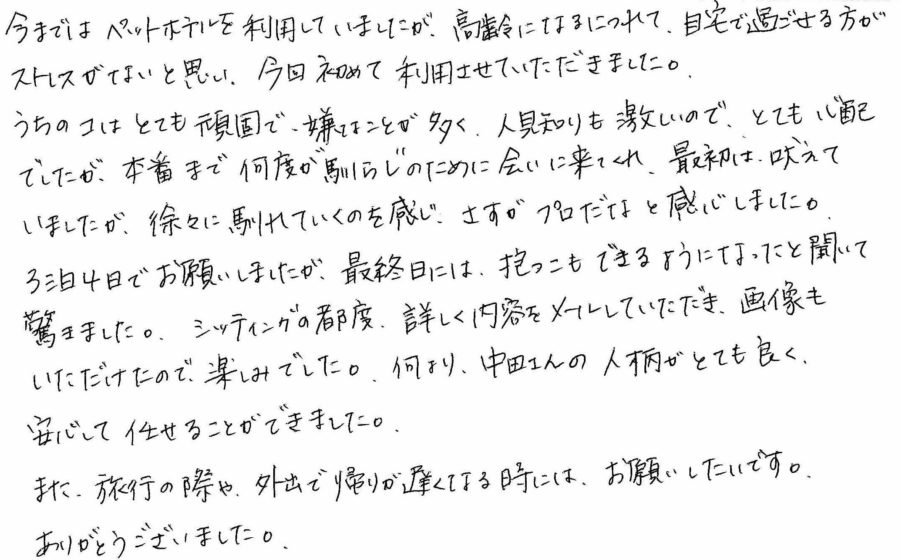 今まではペットホテルを利用していましたが、高齢になるにつれて、自宅で過ごせる方が
ストレスがないと思い、今回初めて利用させていただきました。
うちのコはとても頑固で、嫌なことが多く、人見知りも激しいので、とても心配
でしたが、本番まで何度が馴らしのために会いに来てくれ、最初は、吠えて
いましたが、徐々に馴れていくのを感じ、さすがプロだなと感心しました。
3泊4日でお願いしましたが、最終日には、抱っこもできるようになったと聞いて
驚きました。シッティングの都度、詳しく内容をメールしていただき、画像も
いただけたので、楽しみでした。何より、中田さんの人柄がとても良く、
安心して任せることができました。
また、旅行の際や、外出で帰りが遅くなる時には、お願いしたいです。
ありがとうございました。